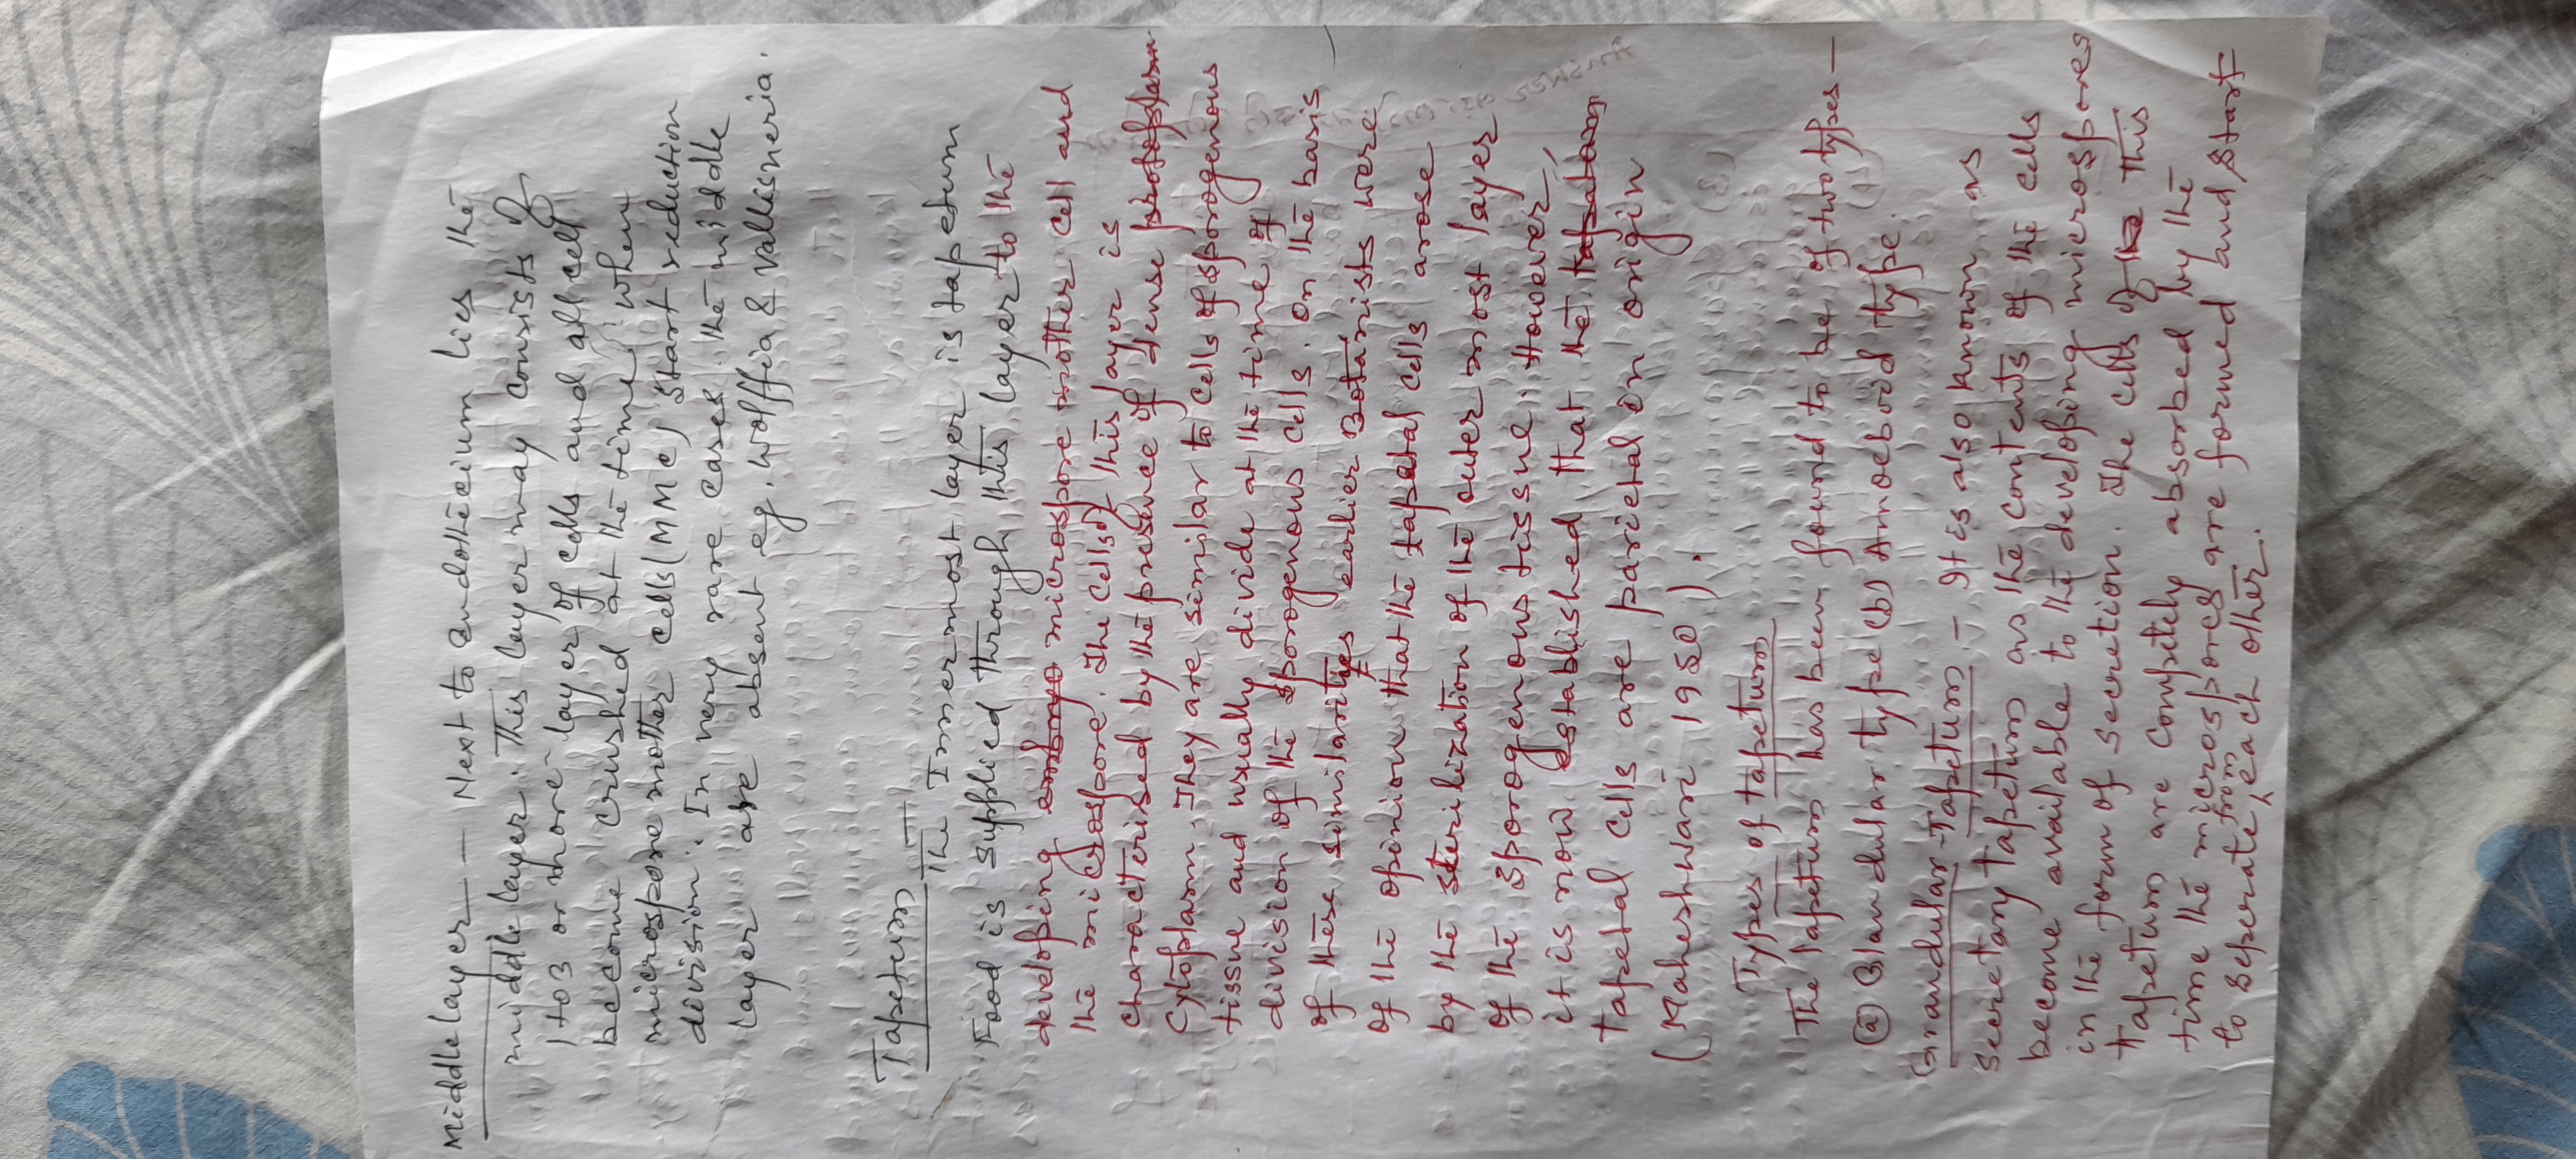 Middle layer — Next to endothecium lies the
middle layer. This layer may consists of
1 to 3 or more layer of cells and all cell
become crushed at the time when
microspore mother cells (MMC) start reduction
division. In very rare cases the middle
layer are absent eg. wolffia & vallisneria.
Tapetum
The Innermost layer is tapetum
Food is supplied through this layer to the
developing microspore mother cell and
the microspore. The cells of this layer is
characterised by the presence of dense
Cytoplasm. They are similar to cells of sporogenous
tissue and usually divide at the time of
division of the sporogenous cells. On the basis
of these similarities earlier Botanists were
of the opinion that the tapetal cells arose
by the sterilization of the outer most layer
of the sporogenous tissue. However,
it is now established that the
tapetal cells are parietal in origin
(Maheshwari 1950).
Types of tapetum
The tapetum has been found to be of two types —
(a) Glandular type (b) Amoeboid type.
Grandular Tapetum — It is also known as
secretary tapetum as the contents of the cells
become available to the developing microspores
in the form of secretion. The cells of this
tapetum are completely absorbed by the
time the microspores are formed and start
to seperate from each other.